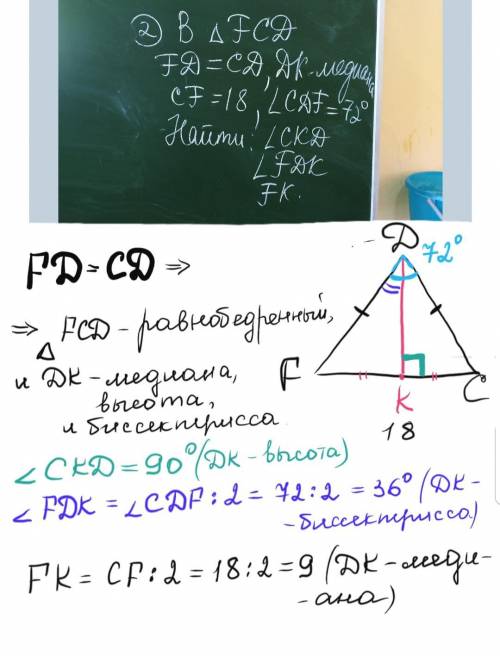 ② В △FCD
FD=CD, DK-медиана
CF=18, ∠CDF=72°
Найти: ∠CKD
∠FDK
FK.
FD=CD ⇒
⇒ △ FCD-равнобедренный,
и DK-медиана,
высота,
и биссектрисса
D 72°
F
K
C
18
∠CKD=90° (DK-высота)
∠FDK=∠CDF:2=72:2=36° (DK-
-биссектрисса)
FK=CF:2=18:2=9 (DK-меди-
-ана)